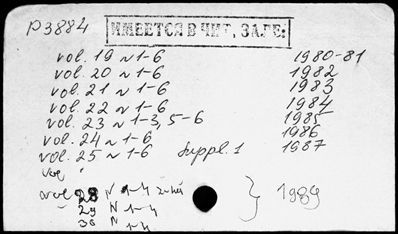 P3884 ИМЕЕТСЯ В ЧИТ. ЗАЛЕ:
vol. 19 N 1-6 1980-81
vol. 20 N 1-6 1982
vol. 21 N 1-6 1983
vol. 22 N 1-6 1984
vol. 23 N 1-3, 5-6 1985
vol. 24 N 1-6 1986
vol. 25 N 1-6 Suppl. 1 1987
vol.
28 N 1-4 1989
29 N 1-4
30 N 1-4